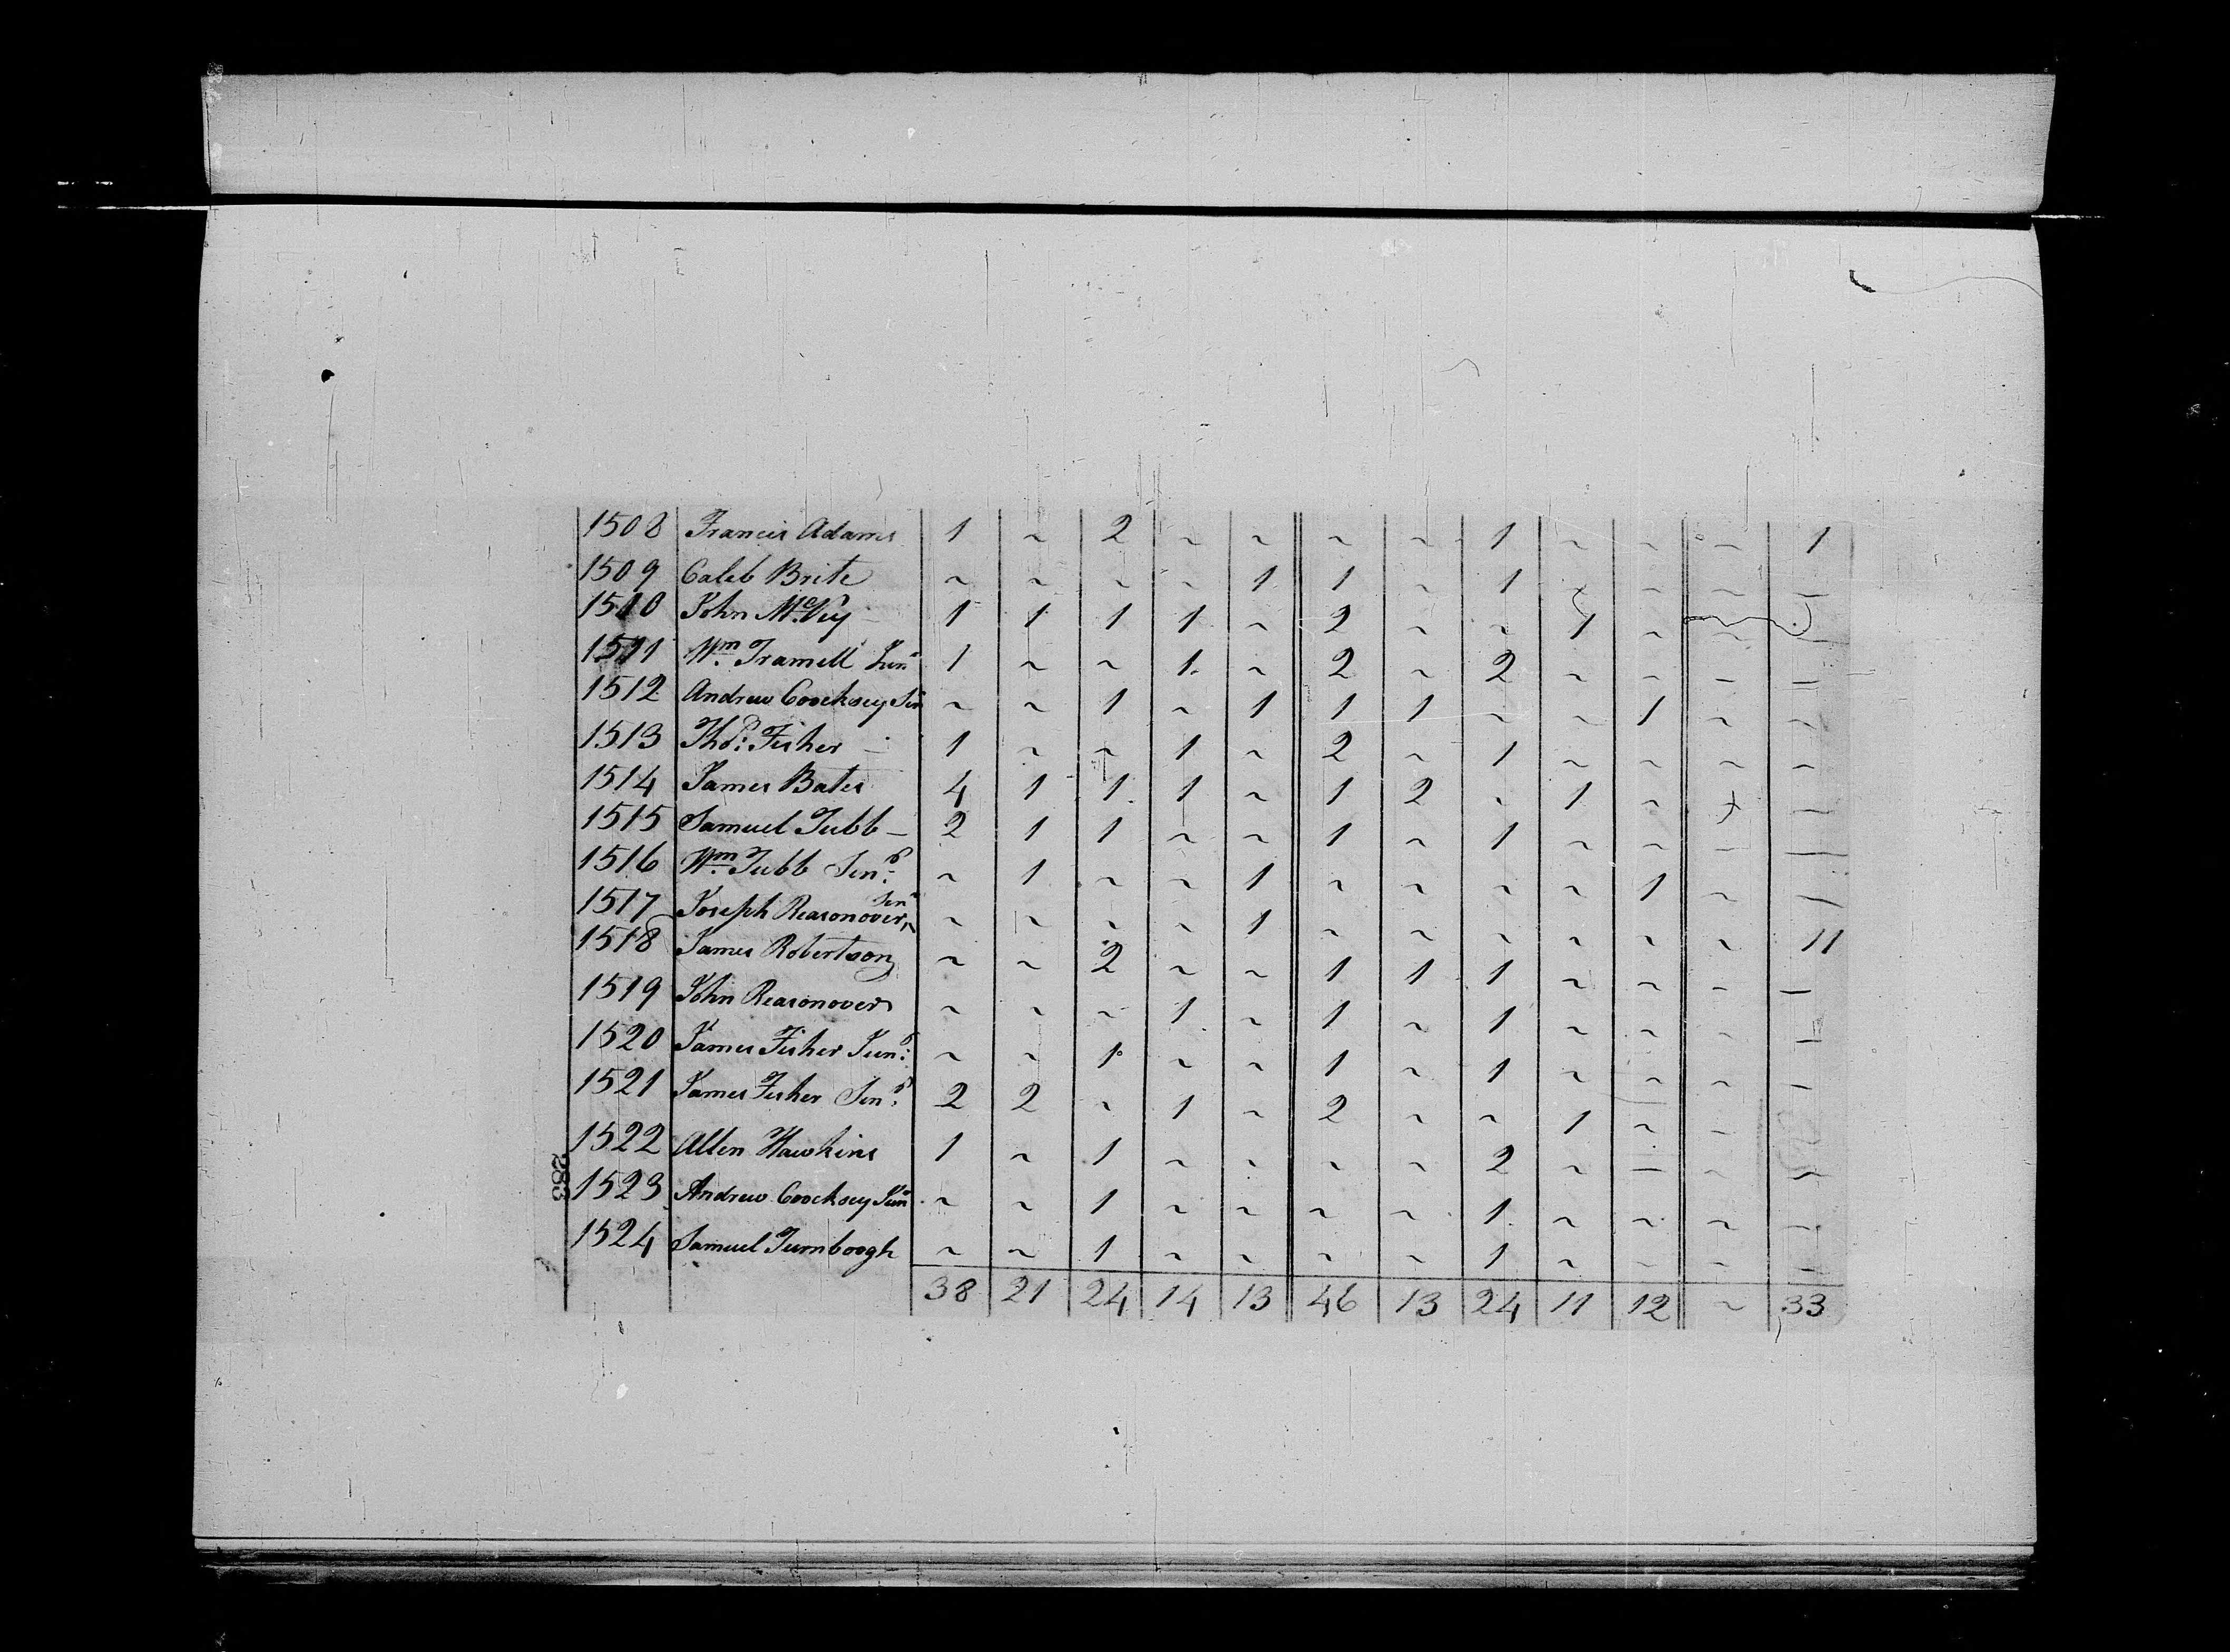 1508 Francis Adams 1 ~ 2 ~ ~ ~ ~ 1 ~ ~ ~ 1
1509 Caleb Brite ~ ~ ~ ~ 1 1 ~ 1 ~ ~ ~ —
1510 John McVey — 1 1 1 1 ~ 2 ~ ~ 1 ~ ~ —
1511 Wm. Tramell Junr 1 ~ ~ 1 ~ 2 ~ 2 ~ ~ — —
1512 Andrew Coocksey Sen ~ ~ 1 ~ 1 1 1 ~ ~ 1 ~ ~
1513 Thos: Fisher — 1 ~ ~ 1 ~ 2 ~ 1 ~ ~ ~ ~
1514 James Bates 4 1 1 1 ~ 1 2 ~ 1 ~ ~ —
1515 Samuel Tubb — 2 1 1 ~ ~ 1 ~ 1 ~ ~ — —
1516 Wm. Tubb Senr: ~ 1 ~ ~ 1 ~ ~ ~ ~ 1 ~ —
1517 Joseph Reasonover Senr ~ ~ ~ ~ 1 ~ ~ ~ ~ ~ ~ 11
1518 James Robertson ~ ~ 2 ~ ~ 1 1 1 ~ ~ ~ —
1519 John Reasonover ~ ~ ~ 1 ~ 1 ~ 1 ~ ~ ~ —
1520 James Fisher Junr: ~ ~ 1 ~ ~ 1 ~ 1 ~ ~ ~ ~
1521 James Fisher Senr: 2 2 ~ 1 ~ 2 ~ ~ 1 ~ ~
1522 Allen Hawkins 1 ~ 1 ~ ~ ~ ~ 2 ~ — ~ ~
1523 Andrew Coocksey Junr ~ ~ 1 ~ ~ ~ ~ 1 ~ ~ ~ ~
1524 Samuel Turnboogh ~ ~ 1 ~ ~ ~ ~ 1 ~ ~ ~ —
38 21 24 14 13 46 13 24 11 12 ~ 33
283